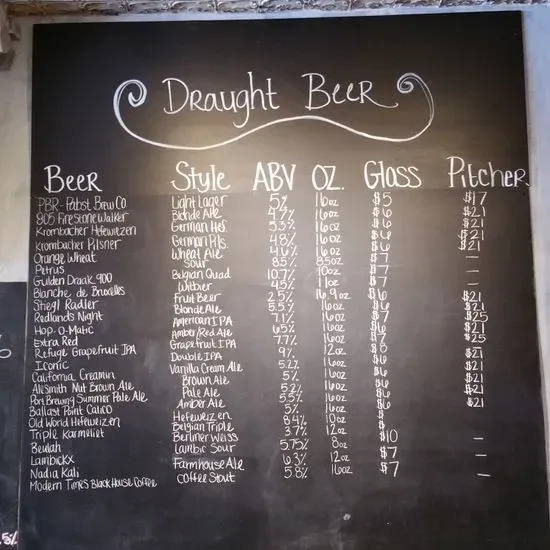 Draught Beer
Beer Style ABV OZ. Glass Pitcher
PBR - Pabst Brew Co Light Lager 5% 16oz $5 $17
805 Firestone Walker Blonde Ale 4.7% 16oz $6 $21
Krombacher Hefeweizen German Hef. 5.3% 16oz $6 $21
Krombacher Pilsner German Pils. 4.8% 16oz $6 $21
Orange Wheat Wheat Ale 4.6% 16oz $6 $21
Petrus Sour 8.5% 8.5oz $7 —
Gulden Draak 900 Belgian Quad 10.7% 10oz $7 —
Blanche de Bruxelles Witbier 4.5% 11oz $7 —
Stiegl Radler Fruit Beer 2.5% 16.9oz $6 $21
Redlands Night Blonde Ale 5.5% 16oz $6 $21
Hop-O-Matic American IPA 7.1% 16oz $7 $25
Extra Red Amber Red Ale 6.5% 16oz $6 $21
Refuge Grapefruit IPA Grapefruit IPA 7.7% 16oz $7 $25
Iconic Double IPA 9% 12oz
California Creamin Vanilla Cream Ale 5.2% 16oz $6 $21
AleSmith Nut Brown Ale Brown Ale 5% 16oz $6 $21
Port Brewing Summer Pale Ale Pale Ale 5.2% 16oz $6 $21
Ballast Point Calico Amber Ale 5.5% 16oz $6 $21
Old World Hefeweizen Hefeweizen 5% 16oz $6 $21
Triple Karmeliet Belgian Triple 8.4% 10oz $
Beulah Berliner Weiss 3.7% 12oz $
Lambickx Lambic Sour 5.75% 8oz $10 —
Nadia Kali Farmhouse Ale 6.3% 12oz $7 —
Modern Times Black House Coffee Coffee Stout 5.8% 16oz $7 —
.5%